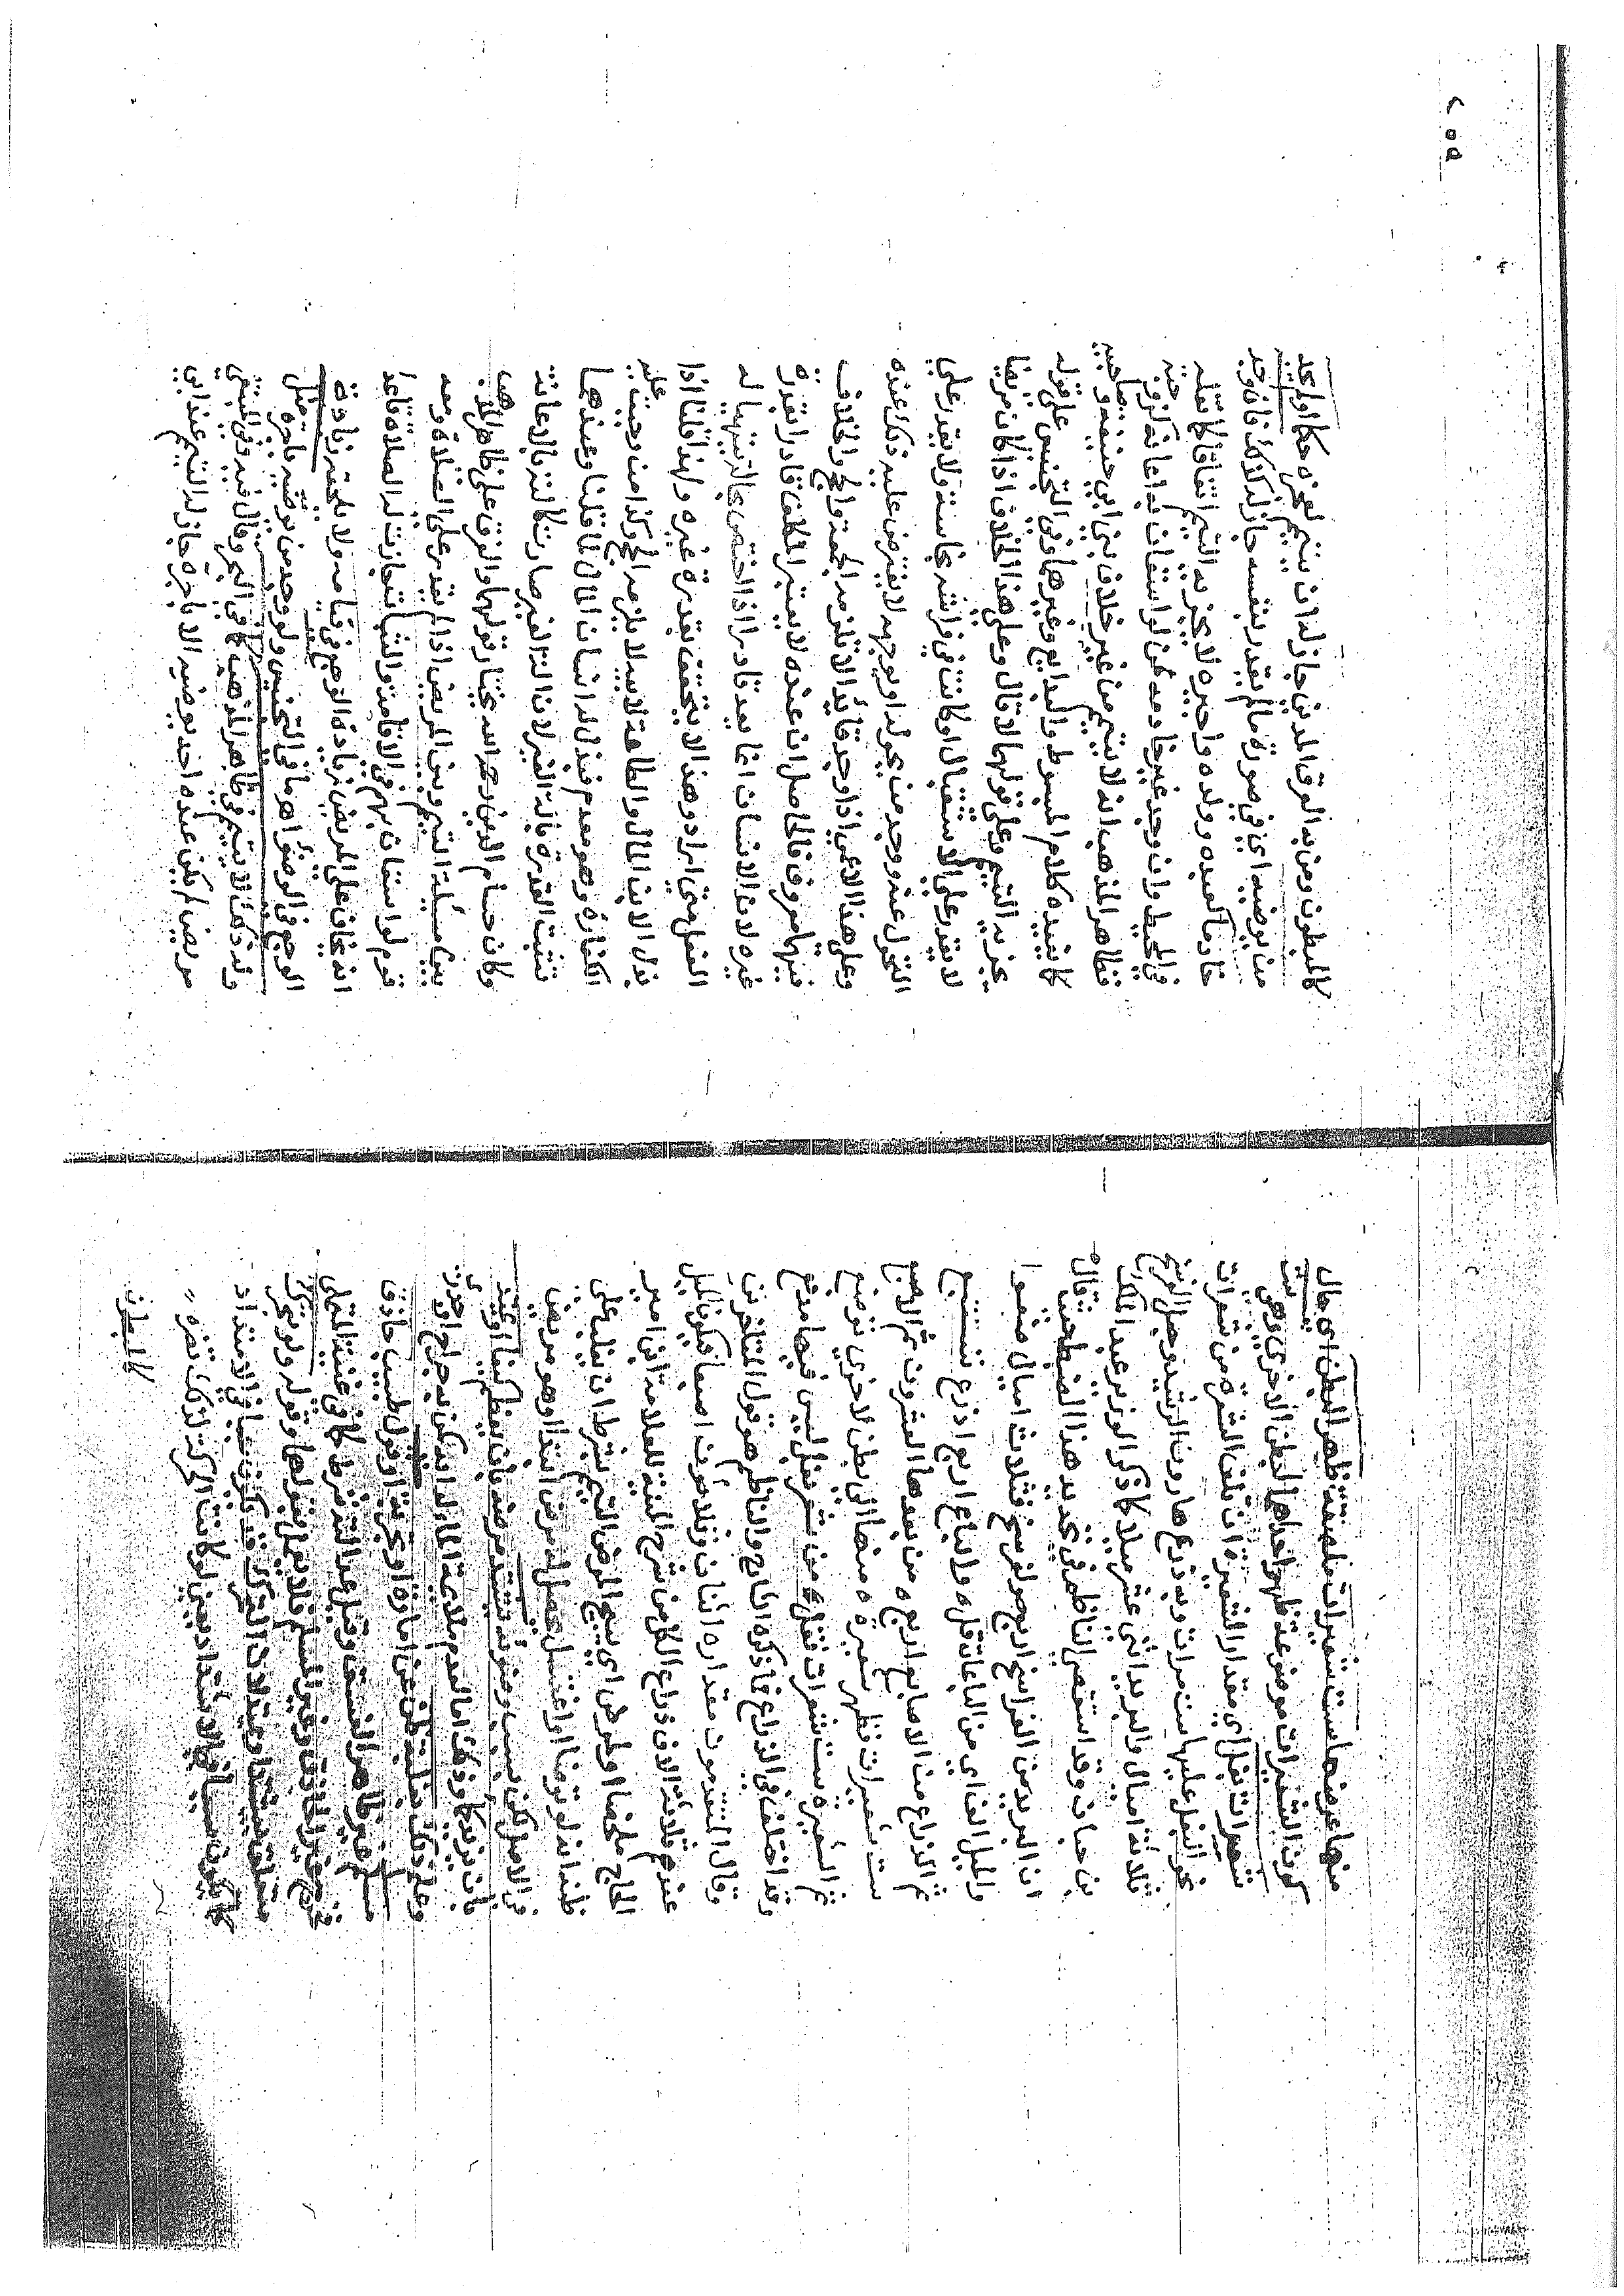 منها عرضها ست شعيرات ملصقة ظهر البطن اي حال
كون الشعيرات موضوعة ظهر احداها لبطن الاخرى وهي ست
شعرات بغل اي مقدار الشعيرة ان تلف الشعرة من شعرات
نحو البغل عليها ست مرات وبه ذرع هارون الرشيد وجعل الفرسخ
ثلاثة اميال والبريد اثني عشر ميلا كما ذكر الوزير عبد الملك
بن حبان وقد استقصى الناظم في تحديد هذا المصطلح حيث قال
ان البريد من الفراسخ اربع ولفرسخ فثلاث اميال ضعوا
والميل الف اي من الباعات قل والباع اربع اذرع تستتبع
ثم الذراع من الاصابع اربع من بعدها العشرون ثم الاصبع
ست شعيرات فظهر شعيرة منها الى بطن لاخرى توضع
ثم الشعيرة ست شعرات فقل من شعر بغل ليس فيها مدفع
وقد اختلف في الذراع فما ذكره الشارح والناظم هو قول المتاخرين
وقال المتقدمون مقداره اثنان وثلاثون اصبعا فيكون الميل
عندهم ثلاثة الاف ذراع الكل من شرح المنية للعلامة ابن امير
الحاج ملخصا او لمرض اي يبيح المرض التيمم بشرط ان يغلب على
ظنه انه لو توضا او اغتسل يحصل له مرض ابتدا او هو مريض
في الاصل لكن بسبب وضوئه يشتد مرضه بان يعظم كيفا او يمتد
بان يزيد كما وذلك اما لعدم ملايمة الماء له كمن به جراح او جدري
وعلى ذلك بغلبة ظن عن امارة او تجربة او قول طبيب حاذق
مسلم غير ظاهر الفسق وقيل عدالته شرط كما في غنية المتملي
فخرج غير الحاذق وغير المسلم فلا يعمل بقولهما وقوله ولو بتحرك
متعلق بيشتد او يمتد لان التحرك قد يكون سببا في الامتداد
كما يكون سببا في الاشتداد يعني لو كانت الحركة لذلك تضره
كالمبطون
٢٥٩
كالمبطون ومن به العرق المدني جاز له ان يتيمم لعجزه حكما او لم يجد
من يوضيه اي في صورة ما لم يقدر بنفسه جاز له كذلك فان وجد
خادما كعبده وولده واجيره لا يجزيه التيمم اتفاقا كما نقله
في المحيط وان وجد غير خادمه ممن لو استعان به اعانه كزوجته
فظاهر المذهب انه لا يتيمم من غير خلاف بين ابي حنيفة وصاحبيه
كما يفيده كلام المبسوط والبدايع وغيرهما وفي التجنيس على قوله
يجزيه التيمم وعلى قولهما لا قال وعلى هذا الخلاف اذا كان مريضا
لا يقدر على الاستقبال او كانت في فراشه نجاسة ولا يقدر على
التحول عنه ووجد من يحوله او يوجهه لا يفترض عليه ذلك عنده
وعلى هذا الاعمى اذا وجد قائدا لا تلزمه الجمعة والحج والخلاف
فيهما معروف فالحاصل ان عنده لا يعتبر المكلف قادرا بقدرة
غيره لان الانسان انما يعد قادرا اذا اختص بحالة يتهيا له
الفعل متى اراد وهذا لا يتحقق بقدرة غيره ولهذا قلنا اذا
بذل الابن المال والطاعة لابيه لا يلزمه الحج وكذا من وجبت عليه
الكفارة وهو معدم فبذل له انسان المال لما قلنا وعندهما
تثبت القدرة بالة الغير لان الة الغير صارت كالته بالاعانة
وكان حسام الدين رحمه الله يختار قولهما والفرق على ظاهر المذهب
بين مسئلة التيمم وبين المريض اذا لم يقدر على الصلاة ومعه
قوم لو استعان بهم في الاقامة والثبات جازت له الصلاة قاعدا
انه يخاف على المريض زيادة الوجع في قيامه ولا يلحقه زيادة
الوجع في الوضوء اهـ ما في التجنيس ولو وجد من توضيه باجرة مثل
وله ذلك لا يتيمم في ظاهر المذهب كما في البحر وقال فيه وفي المبتغى
مريض لم يكن عنده احد يوضيه الا باجرة جاز له التيمم عند ابي